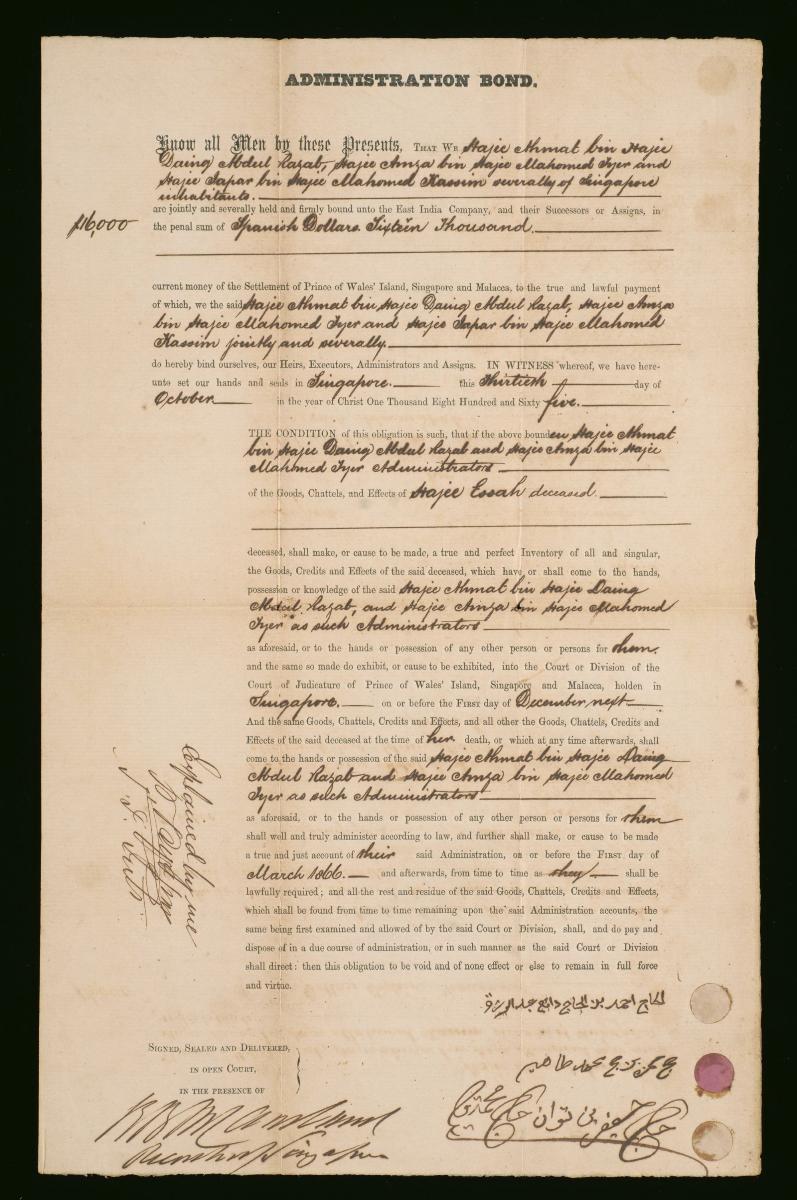 ADMINISTRATION BOND.
Know all Men by these Presents, THAT WE Hajee Ahmat bin Hajee
Daing Abdul Razab, Hajee Amza bin Hajee Mahomed Tyer and
Hajee Japar bin Hajee Mahomed Kassim severally of Singapore
inhabitants.
are jointly and severally held and firmly bound unto the East India Company, and their Successors or Assigns, in
$16,000 the penal sum of Spanish Dollars Sixteen Thousand.
current money of the Settlement of Prince of Wales' Island, Singapore and Malacca, to the true and lawful payment
of which, we the said Hajee Ahmat bin Hajee Daing Abdul Razab, Hajee Amza
bin Hajee Mahomed Tyer and Hajee Japar bin Hajee Mahomed
Kassim jointly and severally.
do hereby bind ourselves, our Heirs, Executors, Administrators and Assigns. IN WITNESS whereof, we have here-
unto set our hands and seals in Singapore. this Thirtieth day of
October in the year of Christ One Thousand Eight Hundred and Sixty five.
THE CONDITION of this obligation is such, that if the above bounden Hajee Ahmat
bin Hajee Daing Abdul Razab and Hajee Amza bin Hajee
Mahomed Tyer Administrators
of the Goods, Chattels, and Effects of Hajee Essah deceased.
deceased, shall make, or cause to be made, a true and perfect Inventory of all and singular,
the Goods, Credits and Effects of the said deceased, which have or shall come to the hands,
possession or knowledge of the said Hajee Ahmat bin Hajee Daing
Abdul Razab, and Hajee Amza bin Hajee Mahomed
Tyer as such Administrators
as aforesaid, or to the hands or possession of any other person or persons for them
and the same so made do exhibit, or cause to be exhibited, into the Court or Division of the
Court of Judicature of Prince of Wales' Island, Singapore and Malacca, holden in
Singapore. on or before the FIRST day of December next
And the same Goods, Chattels, Credits and Effects, and all other the Goods, Chattels, Credits and
Effects of the said deceased at the time of her death, or which at any time afterwards, shall
come to the hands or possession of the said Hajee Ahmat bin Hajee Daing
Abdul Razab and Hajee Amza bin Hajee Mahomed
Tyer as such Administrators
as aforesaid, or to the hands or possession of any other person or persons for them
shall well and truly administer according to law, and further shall make, or cause to be made
a true and just account of their said Administration, on or before the FIRST day of
March 1866. and afterwards, from time to time as they shall be
lawfully required; and all the rest and residue of the said Goods, Chattels, Credits and Effects,
which shall be found from time to time remaining upon the said Administration accounts, the
same being first examined and allowed of by the said Court or Division, shall, and do pay and
dispose of in a due course of administration, or in such manner as the said Court or Division
shall direct: then this obligation to be void and of none effect or else to remain in full force
and virtue.
Explained by me
الحاج احمد بن الحاج دايع عبد
محمد طاهير
حاج جعفر بن توان حاج
SIGNED, SEALED AND DELIVERED,
IN OPEN COURT,
IN THE PRESENCE OF
Recorder Singapore